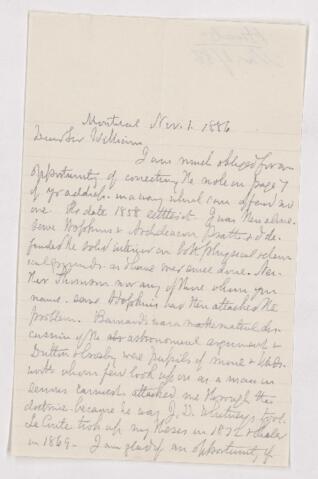 Montreal Nov. 1. 1886
Dear Sir William
I am much obliged for an
opportunity of correcting the note on page 7
of yr address in a way which can offend no
one. The date 1858 settles it. I was then alone
save Hopkins & Archdeacon Pratt & I de-
fended the solid interior on both physical & chem-
ical grounds as I have ever since done. Nei-
ther Thomson nor any of those whom you
name save Hopkins had then attacked the
problem. Barnard's was a mathematical dis-
cussion of the astronomical argument &
Dutton & Crosby were pupils of mine &
with whom few look upon as a man in
earnest attacked me through the
doctrine because he was J. D. Whitney's tool.
Le Conte took up my theses in 1872 &
in 1869. I am glad of an opportunity of